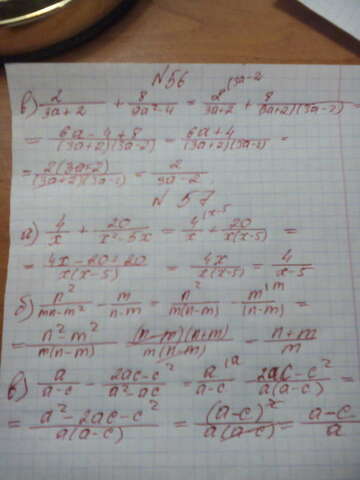 №56
в) 2/(3a+2) + 8/(9a²-4) = 2^(3a-2/(3a+2) + 8/((3a+2)(3a-2)) =
= (6a-4+8)/((3a+2)(3a-2)) = (6a+4)/((3a+2)(3a-2)) =
= 2(3a+2)/((3a+2)(3a-2)) = 2/(3a-2)
№57
а) 4/x + 20/(x²-5x) = 4^(x-5/x + 20/(x(x-5)) =
= (4x-20+20)/(x(x-5)) = 4x/(x(x-5)) = 4/(x-5)
б) n²/(mn-m²) - m/(n-m) = n²/(m(n-m)) - m^(m/(n-m) =
= (n²-m²)/(m(n-m)) = (n-m)(n+m)/(m(n-m)) = (n+m)/m
в) a/(a-c) - (2ac-c²)/(a²-ac) = a^(a/(a-c) - (2ac-c²)/(a(a-c)) =
= (a²-2ac-c²)/(a(a-c)) = (a-c)²/(a(a-c)) = (a-c)/a